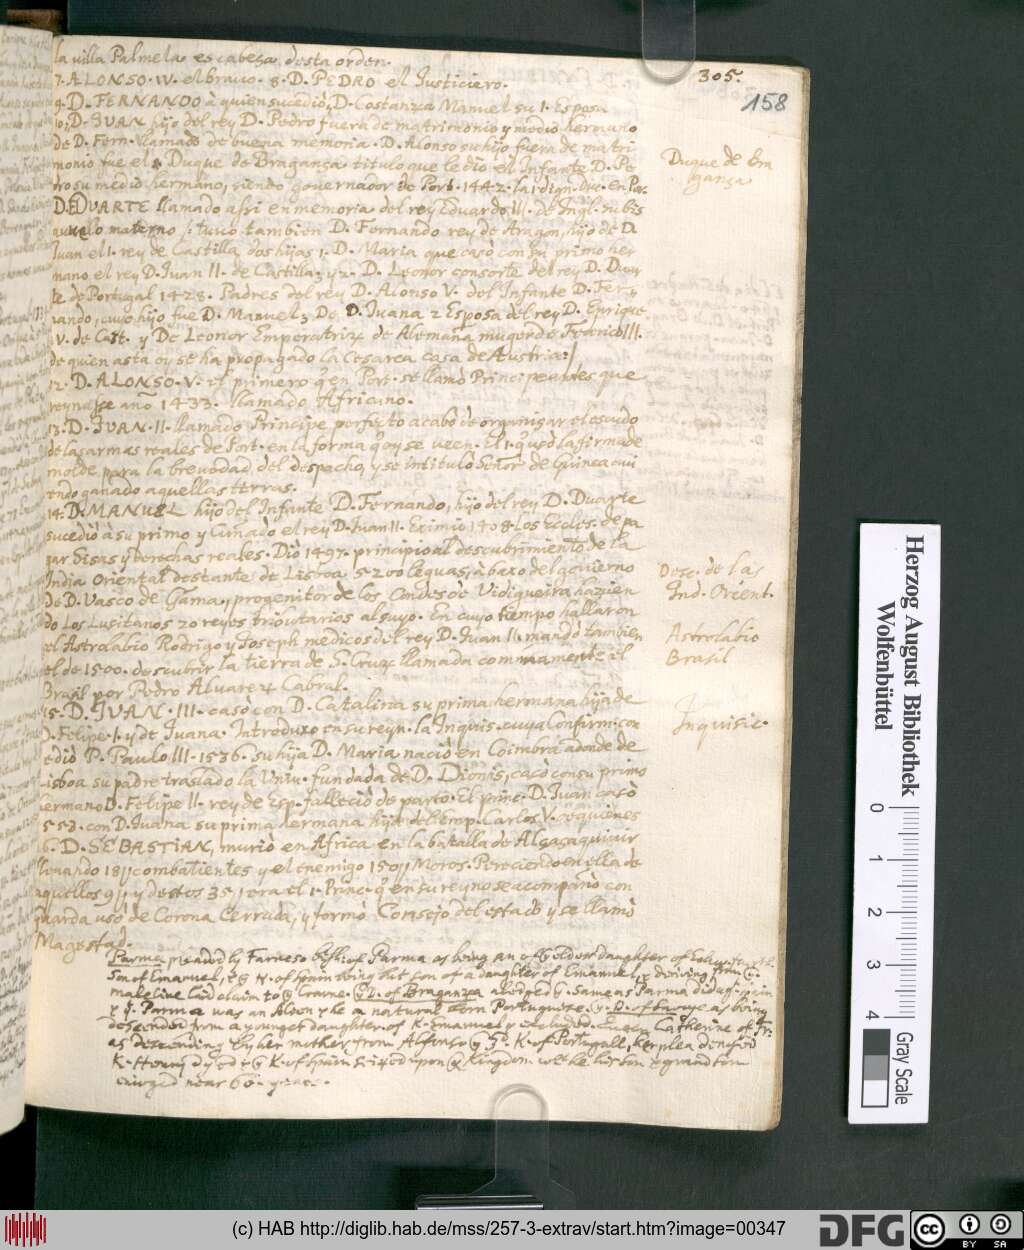 305.
158
la villa Palmela es cabeza desta orden.
7. ALONSO. IV. el bravo. 8. D. PEDRO el Justiciero.
9. D. FERNANDO à quien sucediò, D. Costanza Manuel su 1. Esposa
10. D. JUAN hijo del rey D. Pedro fuera de matrimonio y medio hermano
de D. Fern. llamado de buena memoria. D. Alonso su hijo fuera de matri-
monio fue el 1. Duque de Bragança titulo que le diò el Infante D. Pe
dro su medio hermano, siendo governador de Port. 1442. la 1. dign. Duc. en Por.
Duque de Bra
gança
D. DUARTE llamado assi en memoria del rey Eduardo III. de Ingl. su bis
auuelo materno; tuvo tambien D. Fernando rey de Aragon, hijo de D.
Juan el I. rey de Castilla dos hijas 1. D. Maria que casò con su primo her
mano el rey D. Juan II. de Castilla; y 2. D. Leonor consorte del rey D. Duar
te de Portugal 1428. Padres del rey D. Alonso V. del Infante D. Fer-
nando, cuyo hijo fue D. Manuel; De D. Juana 2 Esposa del rey D. Enrique
IV. de Cast. y De Leonor Emperatriz de Alemaña muger de Federico III.
de quien asta oy se ha propagado la Cesarea casa de Austria.
12. D. ALONSO. V. el primero q̃ en Port. se llamò Principe antes que
reynasse año 1433. llamado Africano.
13. D. JUAN. II. llamado Principe perfecto acabò de organisar el escudo
de las armas reales de Port. en la forma q̃ oy se veen. El 1. q̃ usò la firma de
molde para la brevedad del despacho, y se intitulò Señor de Guinea avi
endo ganado aquellas terras.
14. D. MANUEL hijo del Infante D. Fernando, hijo del rey D. Duarte
sucediò à su primo y Cuñado el rey D. Juan II. Eximiò 1498 los Eccles. de pa
gar Sisas y derechas reales. Diò 1497. principio al descubrimiento de la
India Oriental destante de Lisboa 5200 leguas, à baxo del govierno
de D. Vasco de Gama, progenitor de los Condes de Vidigueira hazien
do los Lusitanos 20 reyes tributarios al suyo. En cuyo tiempo hallaron
Desc. de las
Ind. Orient.
el Astrolabio Rodrigo y Joseph medicos del rey D. Juan II. mandò tambien
el de 1500. descubrir la tierra de S. Cruz llamada commúnamente el
Brasil por Pedro Alvarez Cabral.
Astrolabio
Brasil
15. D. JUAN. III. casò con D. Catalina su prima hermana hija de
D. Felipe. I. y de Juana. Introduxo en su reyn. la Inquis. cuya Confirm. con
cediò P. Paulo III. 1536. su hija D. Maria naciò en Coimbra adonde de
Inquisic.
Lisboa su padre trasladò la Univ. fundada de D. Dionis, casò con su primo
hermano D. Felipe II. rey de Esp. falleciò de parto. El princ. D. Juan casò
553. con D. Juana su prima hermana hija del Emp. Carlos V. de quienes
16. D. SEBASTIAN, muriò en Africa en la batalla de Alcaçaquivir
llevando 18 combatientes y el enemigo 150 Moros. Pereciendo en ella de
aquellos 9 y destos 35, era el 1. Princ. q̃ en su reyno se acompañò con
guarda usò de Corona Cerrada, y formò Consejo del estado y se llamò
Magestad.
Parma pleaded by Farnese of Parma as being an daughter of
Son of Emanuel, K. of Spain being but son of a daughter of Emanuel,
male line laid claim to Crowne. D. of Braganza aledged same as Parma
Parma was an Alien & he a natural born Portuguese. D. of Savoye as being
descended from a younger daughter of K. Emanuel excluded. Queen Catherine of Fr.
as descending by her mother from Alfonso K. of Portugall, her plea denyed
K. Henry dyed & K. of Spain seized upon Kingdom & grandson
enioyed near 60. years.
Herzog August Bibliothek
Wolfenbüttel
0
1
2
3
4
Gray Scale
(c) HAB http://diglib.hab.de/mss/257-3-extrav/start.htm?image=00347
DFG
cc
BY SA